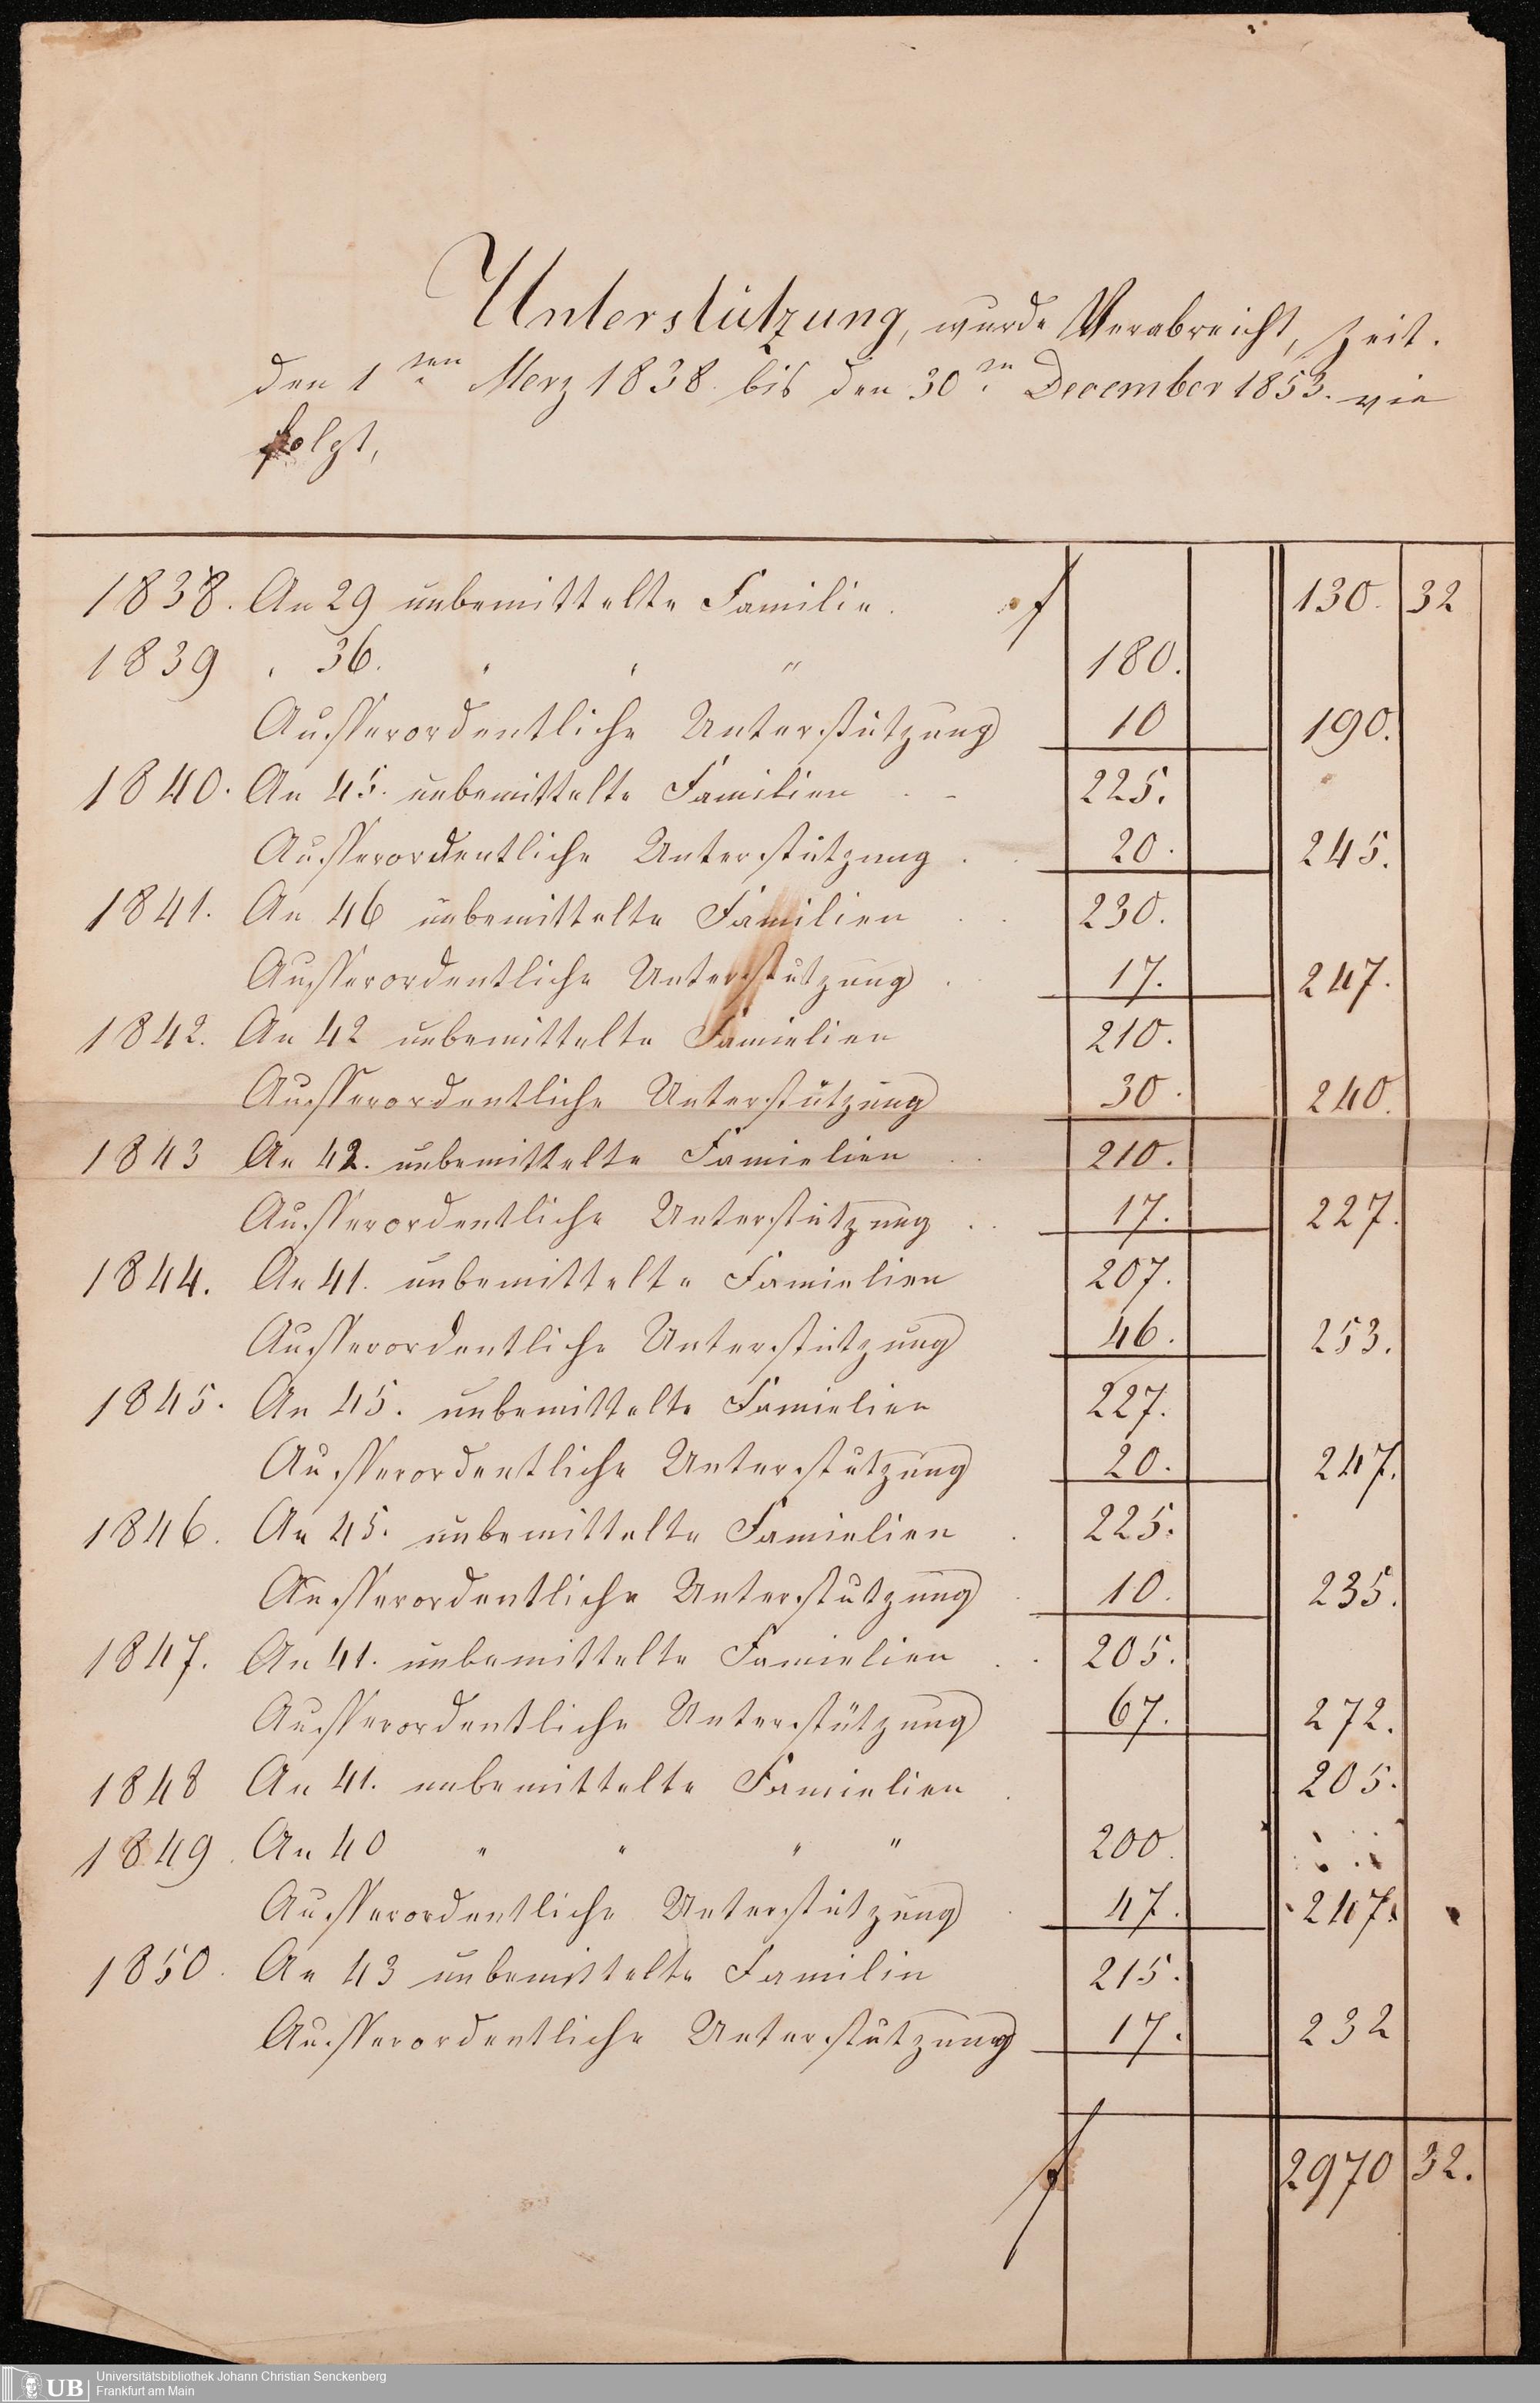 Unterstützung, wurde Verabreicht, zeit.
den 1ten Merz 1838. bis den 30ten December 1853. wie
folgt,
1838. An 29 unbemittelte Familie. f 130. 32
1839 " 36. " " " 180.
Ausserordentliche Unterstützung 10 190.
1840. An 45. unbemittelte Familien . - 225.
Ausserordentliche Unterstützung . . 20. 245.
1841. An 46 unbemittelte Familien . . 230.
Ausserordentliche Unterstützung . . 17. 247.
1842. An 42 unbemittelte Famielien 210.
Ausserordentliche Unterstützung 30. 240.
1843 An 42. unbemittelte Famielien . . 210.
Ausserordentliche Unterstützung . . 17. 227.
1844. An 41. unbemittelte Famielien 207.
Ausserordentliche Unterstützung 46. 253.
1845. An 45. unbemittelte Famielien 227.
Ausserordentliche Unterstützung 20. 247.
1846. An 45. unbemittelte Famielien . 225.
Ausserordentliche Unterstützung . 10. 235.
1847. An 41. unbemittelte Famielien . . 205.
Ausserordentliche Unterstützung 67. 272.
1848 An 41. unbemittelte Famielien . 205.
1849. An 40 " " " " 200.
Ausserordentliche Unterstützung . 47. 247.
1850. An 43 unbemittelte Familin 215.
Ausserordentliche Unterstützung 17. 232
f 2970 32.
UB
Universitätsbibliothek Johann Christian Senckenberg
Frankfurt am Main